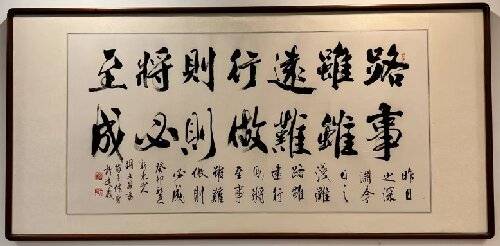 路雖遠行則將至
事雖難做則必成
昨日
之深
淵今
日之
淺
路雖
遠行
則將
至事
雖難
做則
必成
癸卯